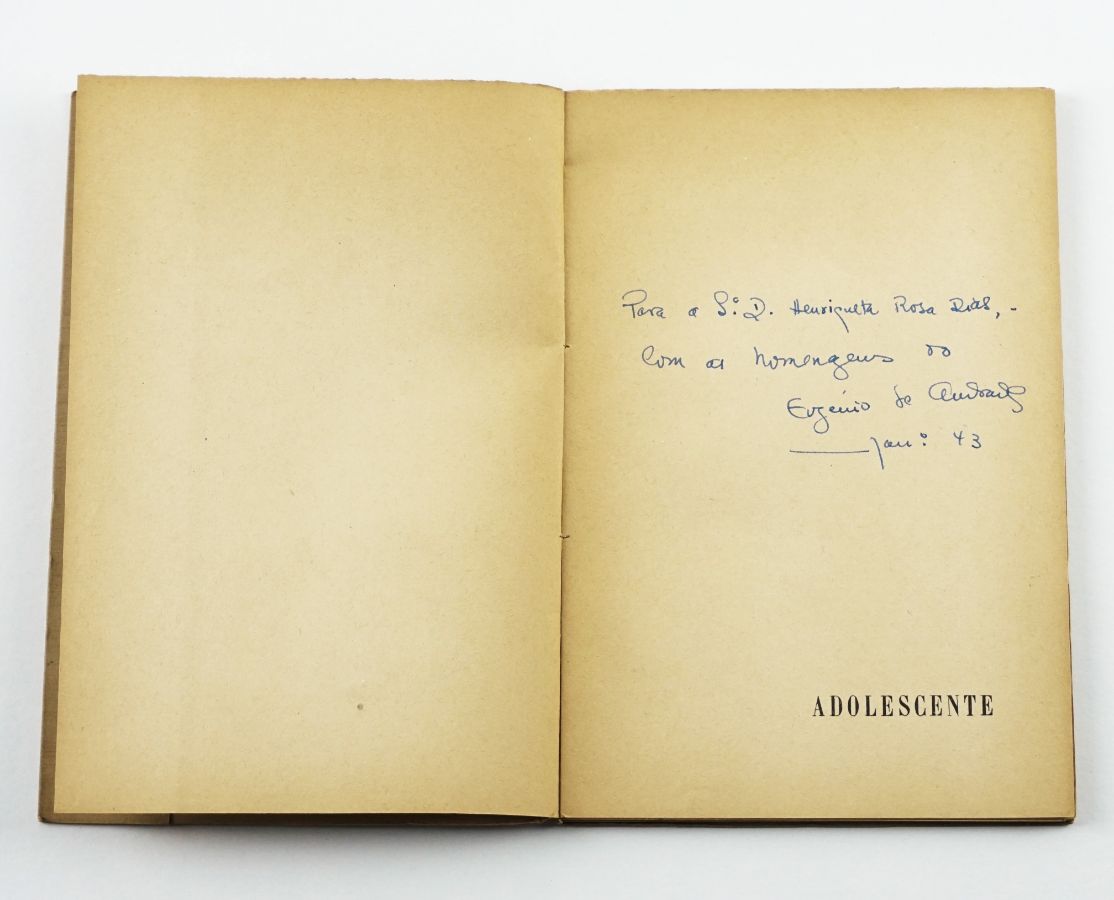 Para a S.ª D. Henriqueta Rosa Dias, -
Com as homenagens do
Eugénio de Andrade
Jan.º 43
ADOLESCENTE